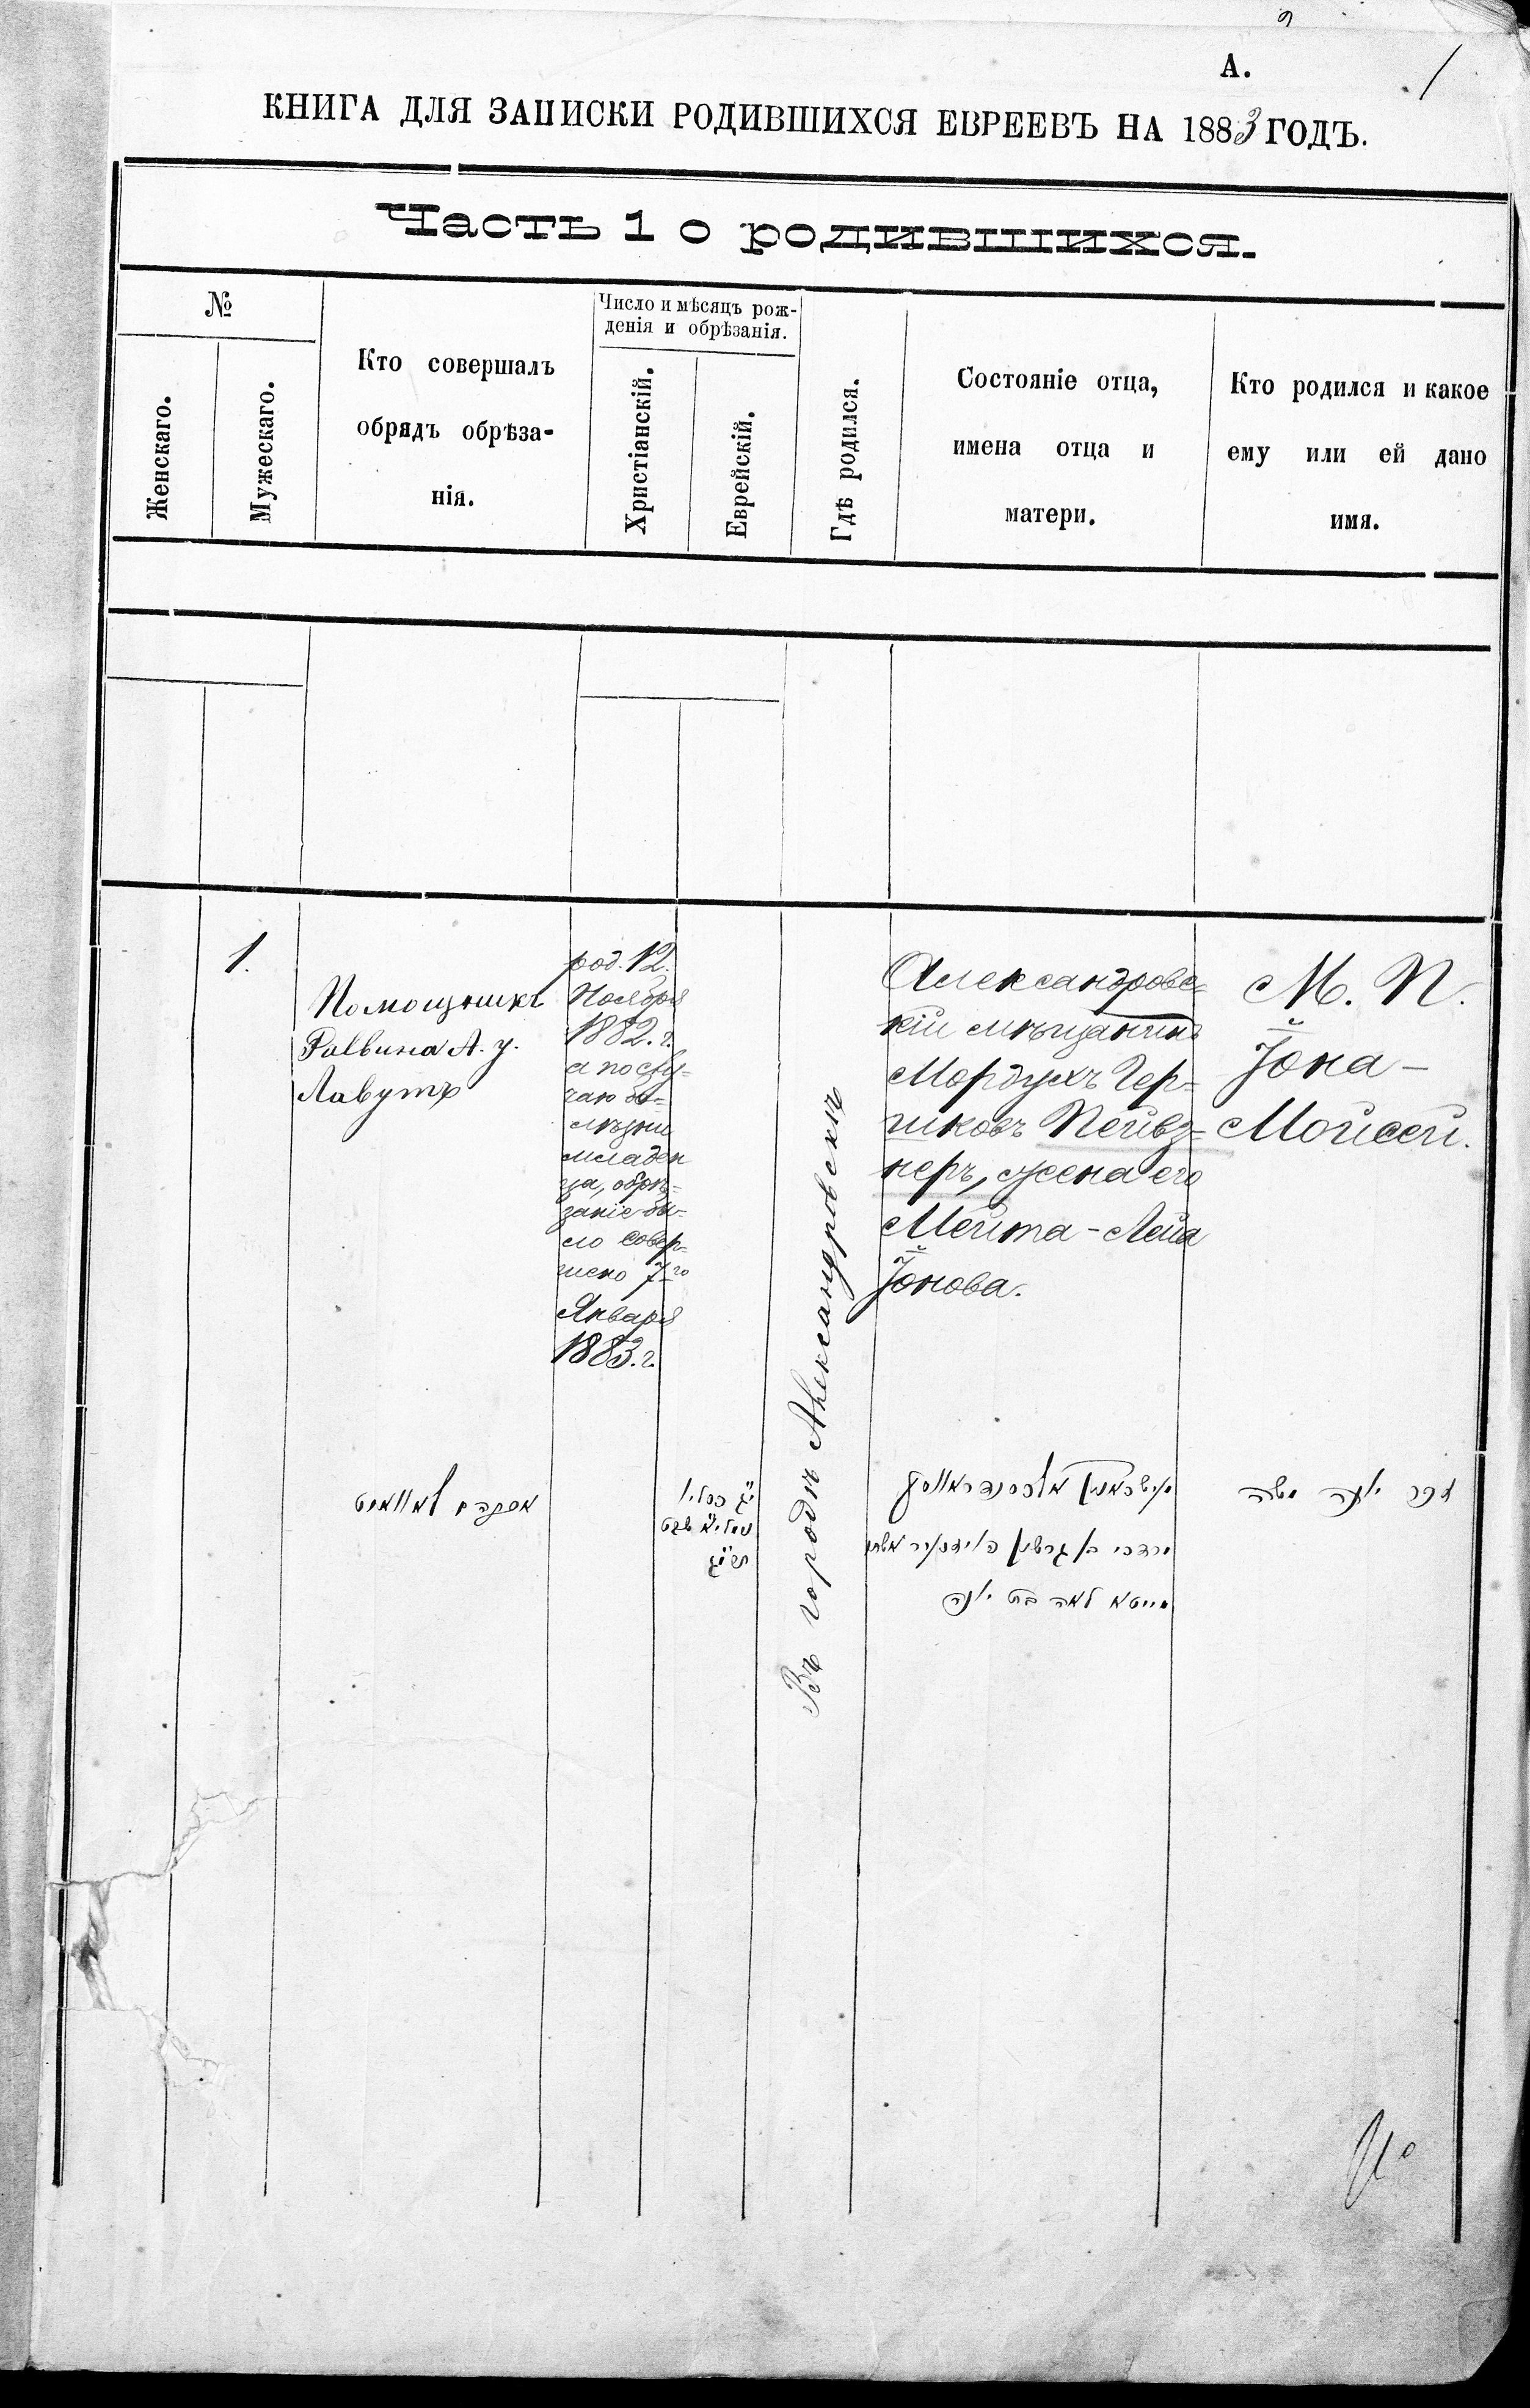 А.
/
КНИГА ДЛЯ ЗАПИСКИ РОДИВШИХСЯ ЕВРЕЕВЪ НА 1883 ГОДЪ.
Часть 1 о родившихся.
№
Женскаго.
Мужескаго.
Кто совершалъ
обрядъ обрѣза-
нія.
Число и мѣсяцъ рож-
денія и обрѣзанія.
Христіанскій.
Еврейскій.
Гдѣ родился.
Состояніе отца,
имена отца и
матери.
Кто родился и какое
ему или ей дано
имя.
1.
Помощникъ
Раввина А. у.
Лавутъ
род. 12.
Ноября
1882. г.
а по слу-
чаю бо-
лѣзни
младен
ца, обрѣ-
заніе бы-
ло совер-
шено 7го
Января
1883. г.
Въ городѣ Александровскѣ
Александровс-
кій мѣщанинъ
Мордухъ Гер-
шковъ Пейвз-
неръ, жена его
Мейта-Лейа
Іонова.
М. П.
Іона-
Мойсей.
יג כסליו
שבט
מרדכי בן
מייטא לאה בת יונה
זכר יונה משה